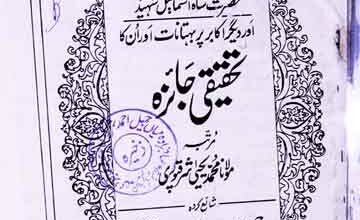 حضرت شاہ اسماعیل شہید
اور دیگر اکابر پر بہتانات اور اُن کا
تحقیقی جائزہ
مرتبہ
مولانا محمد یحییٰ شرقپوری
شائع کردہ